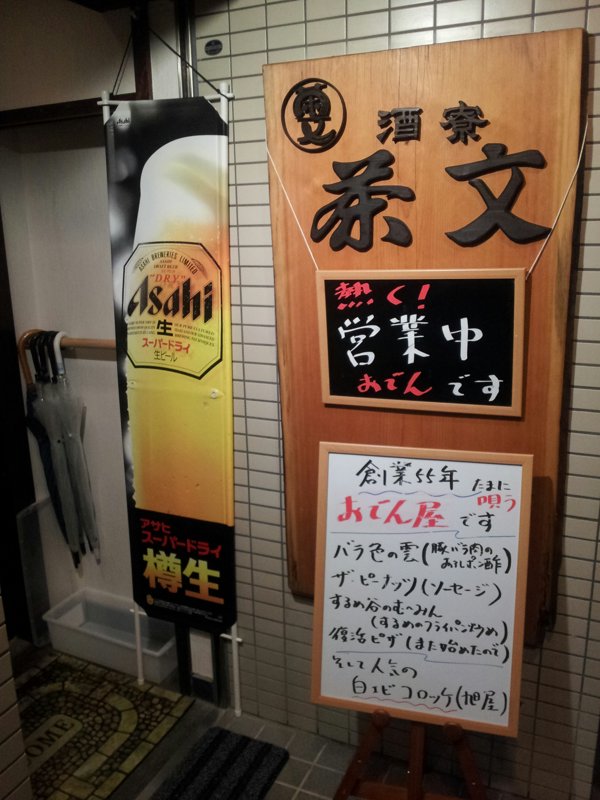 酒寮
茶文
熱く!
営業中
おでんです
創業55年 たまに
唄う
おでん屋です
バラ色の雲(豚バラ肉の
おろしポン酢)
ザ・ピーナッツ(ソーセージ)
するめ谷のむへみん
(するめのフライパン炒め)
復活ピザ(また始めたので)
そして人気の
白エビコロッケ(旭屋)
Asahi
ASAHI BREWERIES LIMITED
"DRY"
Asahi
生
スーパードライ
生ビール
アサヒ
スーパードライ
樽生
WELCOME